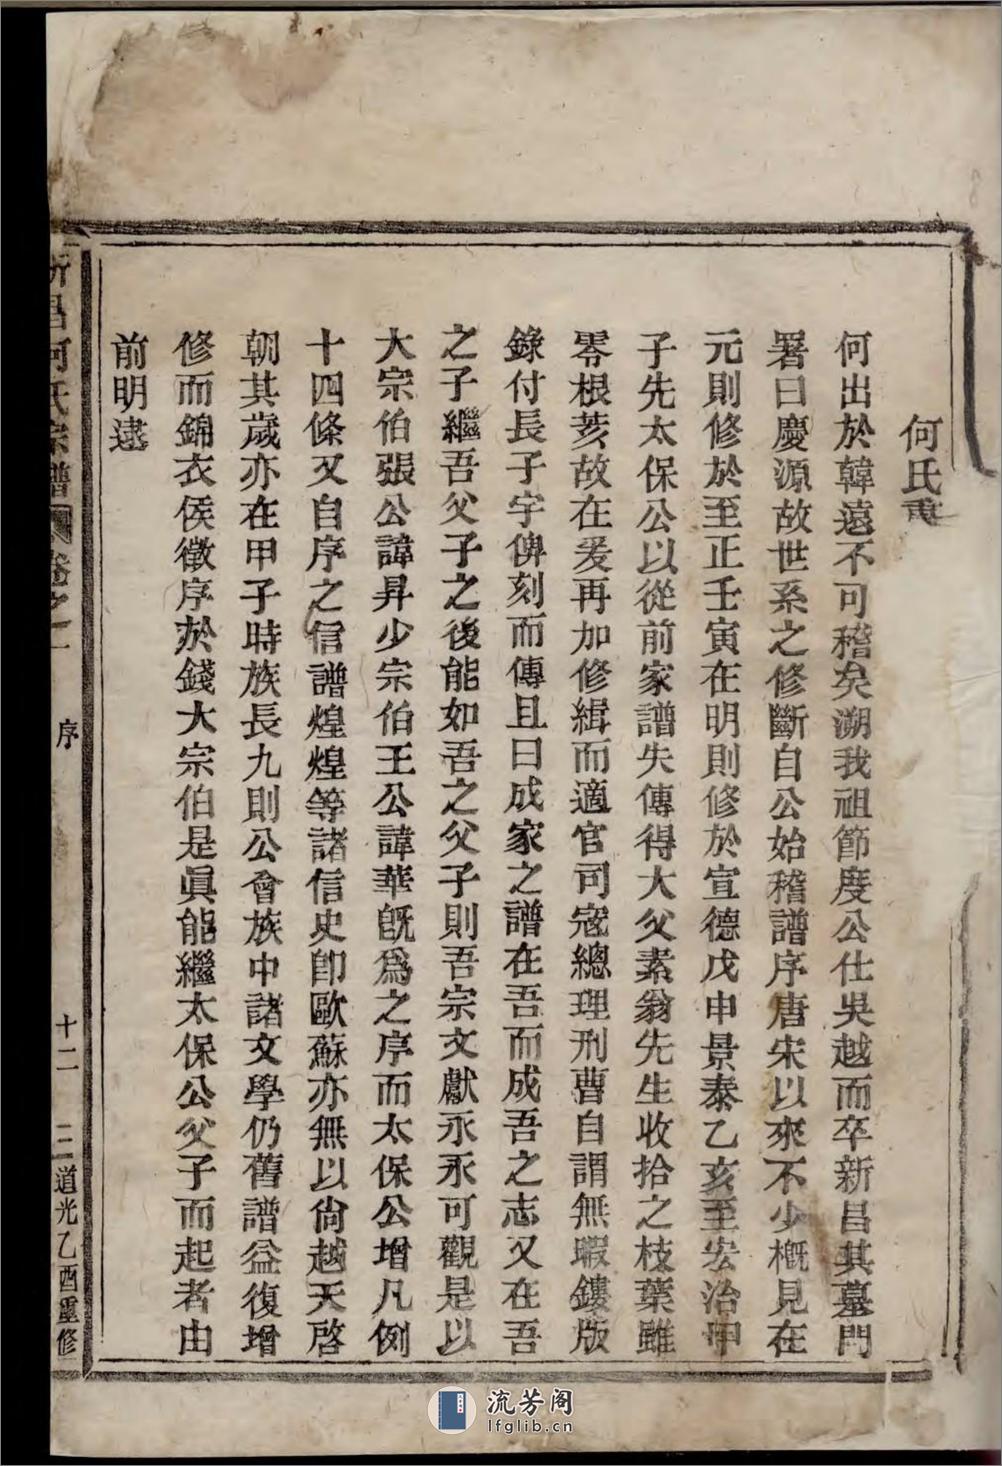 何氏重
何出於韓遠不可稽矣溯我祖節度公仕吳越而卒新昌其墓門
署曰慶源故世系之修斷自公始稽譜序唐宋以來不少概見在
元則修於至正壬寅在明則修於宣德戊申景泰乙亥至宏治甲
子先太保公以從前家譜失傳得大父素翁先生收拾之枝葉雖
零根荄故在爰再加修緝而適官司寇總理刑曹自謂無暇鏤版
錄付長子宇俾刻而傳且曰成家之譜在吾而成吾之志又在吾
之子繼吾父子之後能如吾之父子則吾宗文獻永永可觀是以
大宗伯張公諱昇少宗伯王公諱華旣爲之序而太保公增凡例
十四條又自序之信譜煌煌等諸信史卽歐蘇亦無以尙越天啓
朝其歲亦在甲子時族長九則公會族中諸文學仍舊譜益復增
修而錦衣侯徵序於錢大宗伯是眞能繼太保公父子而起者由
前明逮
新昌何氏宗譜 卷之一 序 十二 道光乙酉重修
流芳阁
lfglib.cn